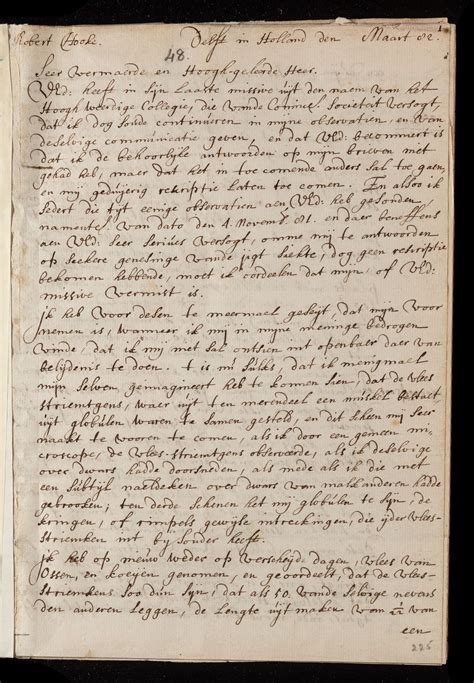 Robert Hooke. Delft in Holland den Maart 82. 1
48.
Seer vermaerde en Hoogh-geleerde Heer.
Uld: heeft in sijn laaste missive uijt den naem van het
Hoogh weerdige Collegie, die vande Conincl. Societeit versogt,
dat ik dog soude continueren in mijne observatien, en van
deselvige communicatie geven, en dat Uld: bekommert is
dat ik de behoorlijke antwoorden op mijn brieven niet
gehad heb, maer dat het in toe comende anders sal toe gaen,
en mij geduijrig rescriptie laten toe comen. En alsoo ik
sedert die tijt eenige observatien aen Uld: heb gesonden
namentl: van dato den 4. Novemb: 81. en daer beneffens
aen Uld: seer serieus versogt, omme mij te antwoorden
op seekere genesinge vande jigt siekte, dog geen rescriptie
bekomen hebbende, moet ik oordeelen dat mijn, of Uld:
missive vermist is.
Ik heb voor desen te meermael geseijt, dat mijn voor
nemen is, wanneer ik mij in mijne meninge bedrogen
vinde, dat ik mij niet sal ontsien int openbaer daer van
belijdenis te doen. t is nu sulks, dat ik menigmael
mijn selven geimagineert heb te konnen sien, dat de vlees
striemtgens, waer uijt ten meerendeel een muskel bestaet,
uijt globulen waren te samen gesteld, en dit scheen mij seer
naackt te vooren te comen, als ik door een gemeen mi-
croscope, de vlees-striemtgens observeerde, als ik deselvige
over dwars hadde doorsneden, als mede als ik die met
een subtijl over dwars van malkanderen hadde
gebrooken; ten derde schenen het mij globulen te sijn, de
kringen, of rimpels gewijse intreckingen, die ijder vlees-
striemken int bijsonder heeft.
Ik heb op nieuw weder op verscheijde dagen, vlees van
Ossen, en koeijen genomen, en geoordeelt, dat de vlees-
striemkens soo dun sijn, dat als 50. vande selvige nevens
den anderen leggen, de lengte uijt maken van van
een
225